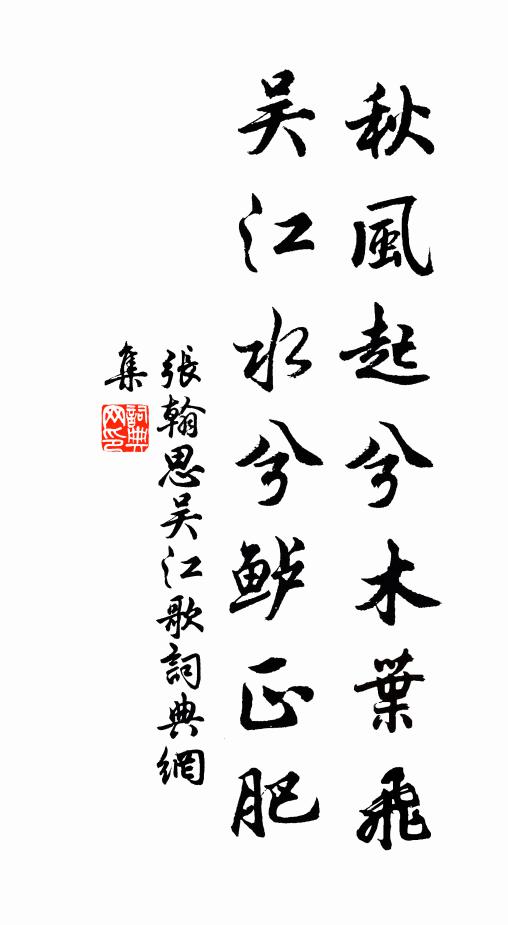 秋風起兮木葉飛
吳江水兮鲈正肥
張翰思吴江歌詞典網
集
詞典网印